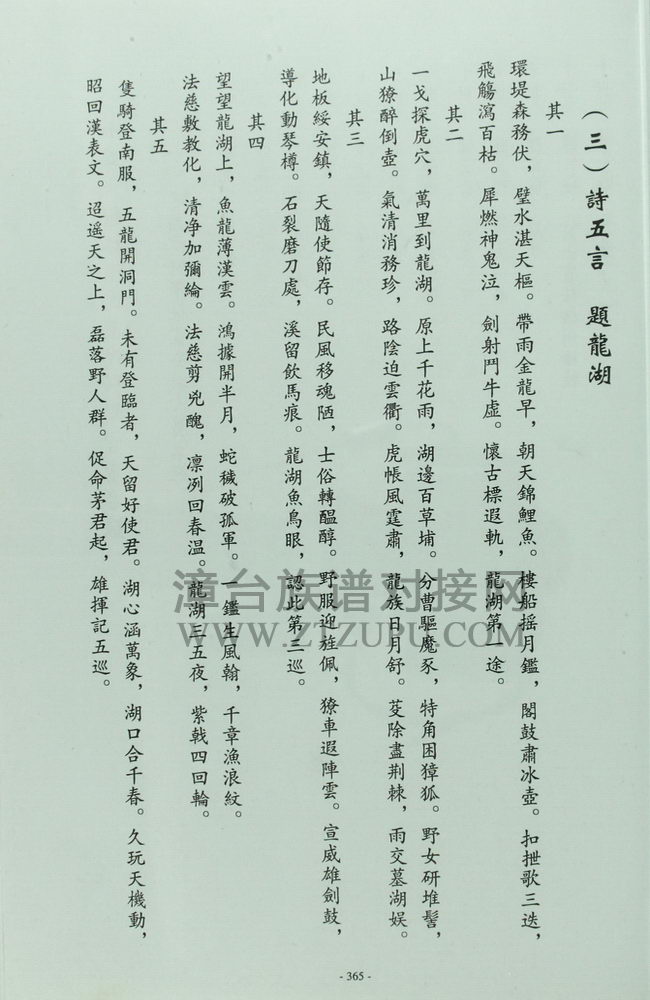 （三）詩五言　題龍湖
其一
環堤森務伏，璧水湛天樞。帶雨金龍早，朝天錦鯉魚。樓船摇月鑑，閣鼓肅冰壺。扣抴歌三迭，
飛觴瀉百枯。犀燃神鬼泣，劍射鬥牛虛。懷古標遐軌，龍湖第一途。
其二
一戈探虎穴，萬里到龍湖。原上千花雨，湖邊百草埔。分曹驅魔豕，特角困獐狐。野女研堆髻，
山獠醉倒壺。氣清消務珍，路陰迫雲衢。虎帳風霆肅，龍族日月舒。芟除盡荆棘，雨交墓湖娱。
其三
地板綏安鎮，天隨使節存。民風移魂陋，士俗轉醞醇。野服迎旌佩，獠車遐陣雲。宣威雄劍鼓，
導化動琴樽。石裂磨刀處，溪留飲馬痕。龍湖魚鳥眼，認此第三巡。
其四
望望龍湖上，魚龍薄漢雲。鴻據開半月，蛇穢破孤軍。一鑑生風翰，千章漁浪紋。
法慈敷教化，清净加彌綸。法慈剪兇醜，凛冽回春温。龍湖三五夜，紫戟四回輪。
其五
隻騎登南服，五龍開洞門。未有登臨者，天留好使君。湖心涵萬象，湖口合千春。久玩天機動，
昭回漢表文。迢遥天之上，磊落野人群。促命茅君起，雄揮記五巡。
漳台族谱对接网
WWW.ZTZUPU.COM
- 365 -